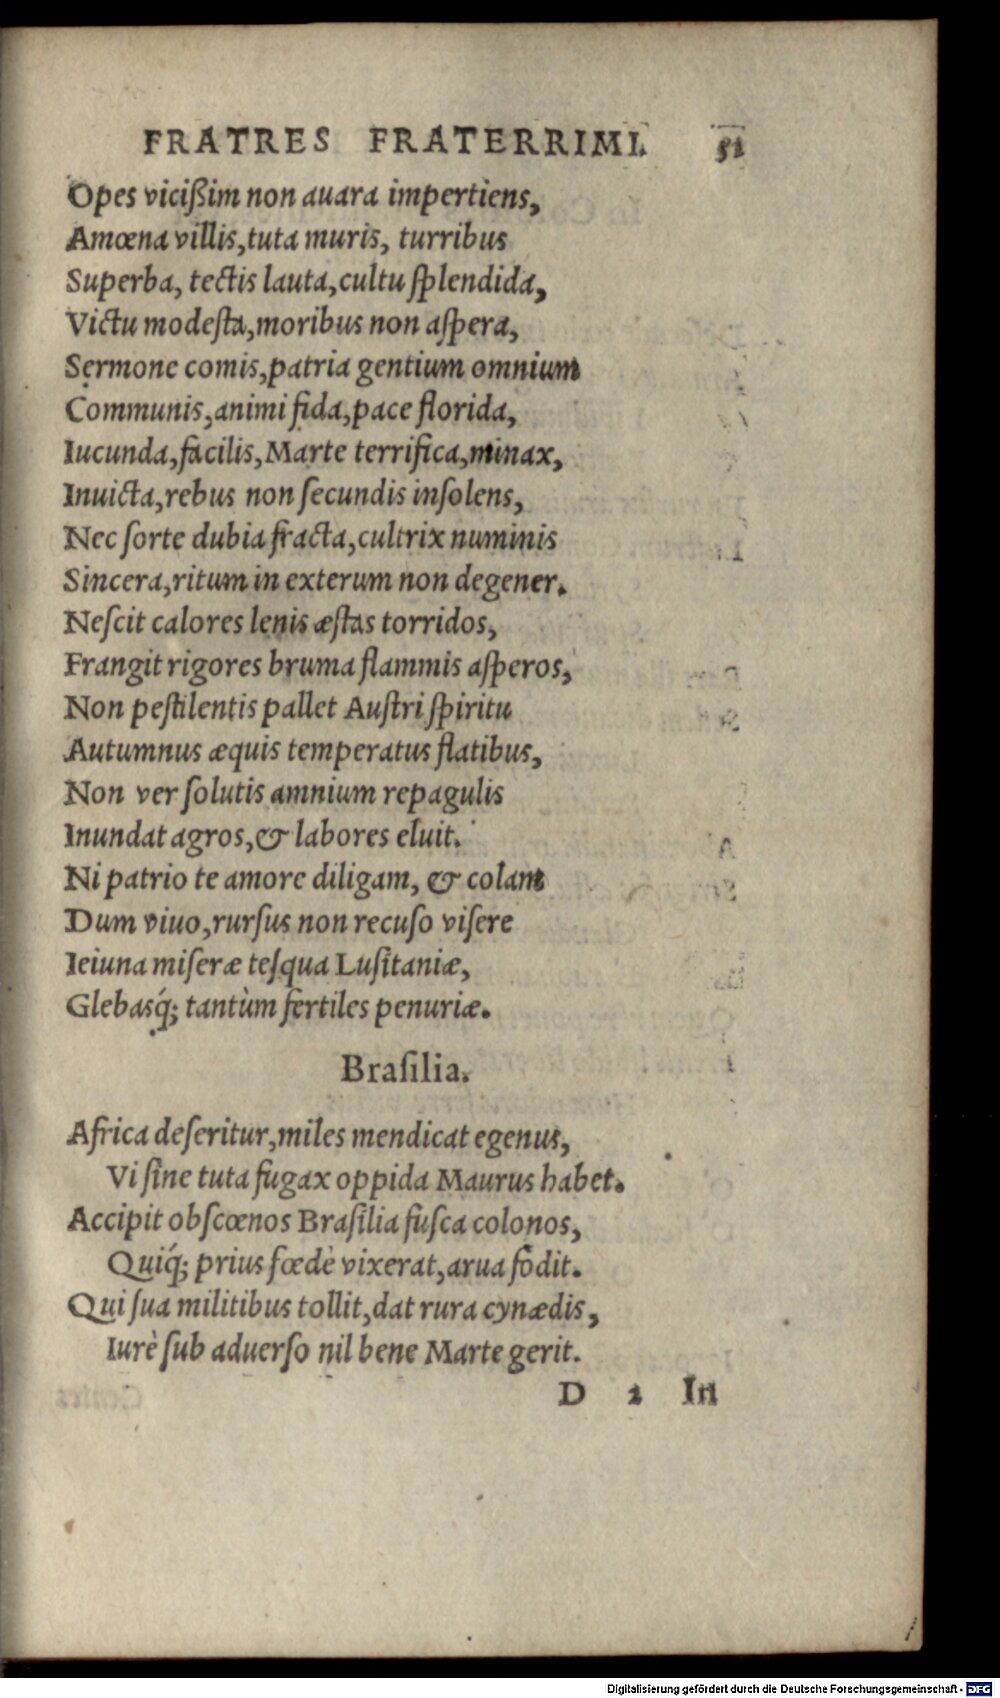 FRATRES FRATERRIMI. 51
Opes vicißim non auara impertiens,
Amœna villis, tuta muris, turribus
Superba, tectis lauta, cultu ſplendida,
Victu modeſta, moribus non aſpera,
Sermone comis, patria gentium omnium
Communis, animi fida, pace florida,
Iucunda, facilis, Marte terrifica, minax,
Inuicta, rebus non ſecundis inſolens,
Nec ſorte dubia fracta, cultrix numinis
Sincera, ritum in exterum non degener.
Neſcit calores lenis æſtas torridos,
Frangit rigores bruma flammis aſperos,
Non peſtilentis pallet Auſtri ſpiritu
Autumnus æquis temperatus flatibus,
Non ver ſolutis amnium repagulis
Inundat agros, & labores eluit.
Ni patrio te amore diligam, & colam
Dum viuo, rurſus non recuſo viſere
Ieiuna miſeræ teſqua Luſitaniæ,
Glebasq́; tantùm fertiles penuriæ.
Braſilia.
Africa deſeritur, miles mendicat egenus,
Vi ſine tuta fugax oppida Maurus habet.
Accipit obſcœnos Braſilia fuſca colonos,
Quiq́; prius fœdè vixerat, arua fodit.
Qui ſua militibus tollit, dat rura cynædis,
Iurè ſub aduerſo nil bene Marte gerit.
D 2 In
Digitalisierung gefördert durch die Deutsche Forschungsgemeinschaft - DFG